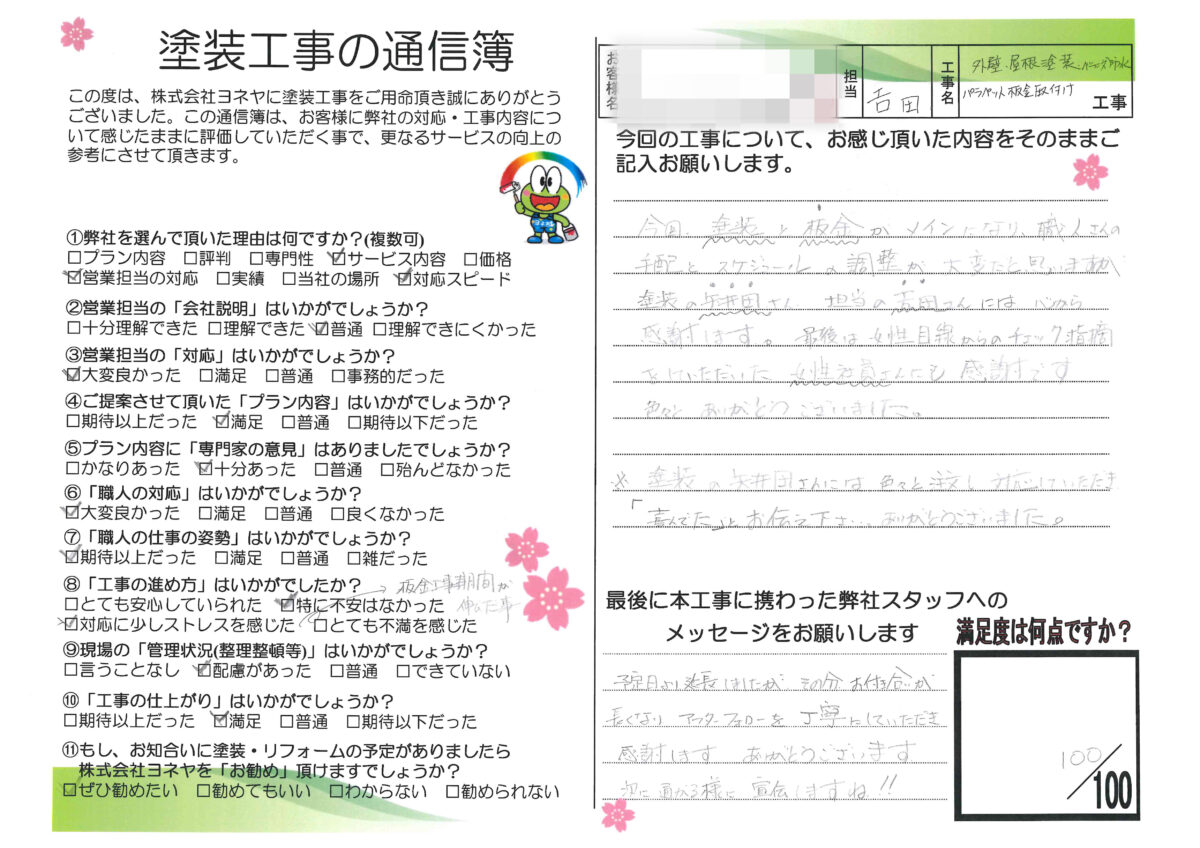 塗装工事の通信簿
この度は、株式会社ヨネヤに塗装工事をご用命頂き誠にありがとう
ございました。この通信簿は、お客様に弊社の対応・工事内容につ
いて感じたままに評価していただく事で、更なるサービスの向上の
参考にさせて頂きます。
①弊社を選んで頂いた理由は何ですか？(複数可)
□プラン内容 □評判 □専門性 ☑サービス内容 □価格
☑営業担当の対応 □実績 □当社の場所 ☑対応スピード
②営業担当の「会社説明」はいかがでしょうか？
□十分理解できた □理解できた ☑普通 □理解できにくかった
③営業担当の「対応」はいかがでしょうか？
☑大変良かった □満足 □普通 □事務的だった
④ご提案させて頂いた「プラン内容」はいかがでしょうか？
□期待以上だった ☑満足 □普通 □期待以下だった
⑤プラン内容に「専門家の意見」はありましたでしょうか？
□かなりあった ☑十分あった □普通 □殆んどなかった
⑥「職人の対応」はいかがでしょうか？
☑大変良かった □満足 □普通 □良くなかった
⑦「職人の仕事の姿勢」はいかがでしょうか？
☑期待以上だった □満足 □普通 □雑だった
⑧「工事の進め方」はいかがでしたか？
→ 板金工事期間が
伸びた事
□とても安心していられた ☑特に不安はなかった
☑対応に少しストレスを感じた □とても不満を感じた
⑨現場の「管理状況(整理整頓等)」はいかがでしょうか？
□言うことなし ☑配慮があった □普通 □できていない
⑩「工事の仕上がり」はいかがでしょうか？
□期待以上だった ☑満足 □普通 □期待以下だった
⑪もし、お知合いに塗装・リフォームの予定がありましたら
株式会社ヨネヤを「お勧め」頂けますでしょうか？
☑ぜひ勧めたい □勧めてもいい □わからない □勧められない
お客様名
担当
吉田
工事名
外壁・屋根塗装・ベランダ防水
パラペット板金取付け
工事
今回の工事について、お感じ頂いた内容をそのままご
記入お願いします。
今回、塗装と板金がメインになり、職人さんの
手配とスケジュールの調整が大変だと思いますが
塗装の矢井田さん 担当の吉田さんには 心から
感謝します。最後は女性目線からのチェック指摘
をいただいた 女性社員さんにも 感謝です
色々と ありがとうございました。
※塗装の矢井田さんには 色々と注文し 対応していただき
「喜んでた」とお伝え下さい… ありがとうございました。
最後に本工事に携わった弊社スタッフへの
メッセージをお願いします
予定日より延長しましたが その分 お付き合いが
長くなり アフターフォローを丁寧にしていただき
感謝します ありがとうございます
次に繋がる様に 宣伝しますね!!
満足度は何点ですか？
100/100